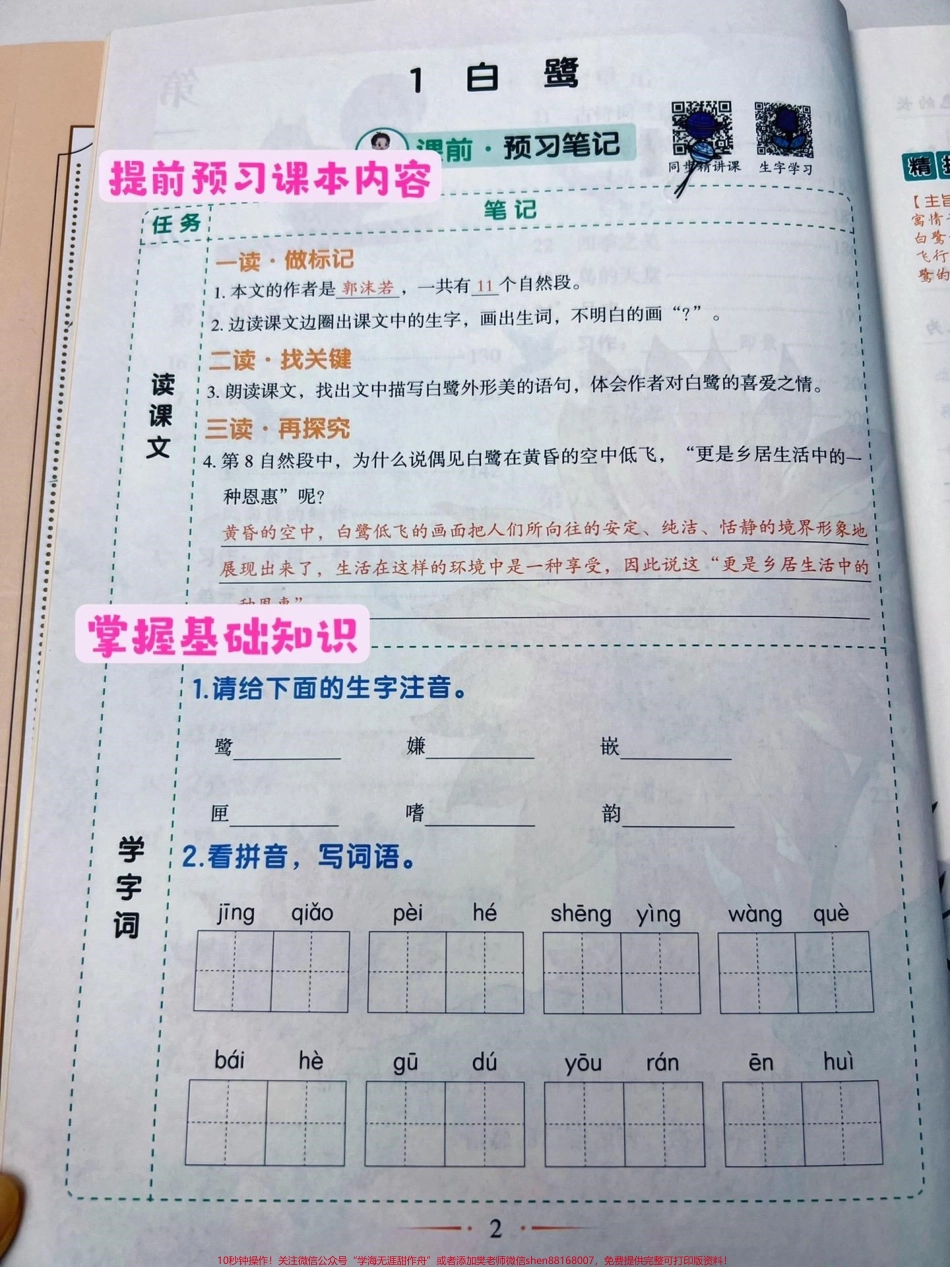 1 白 鹭
课前·预习笔记
同步精讲课 生字学习
提前预习课本内容
任务 笔记
一读·做标记
1. 本文的作者是 郭沫若 ，一共有 11 个自然段。
2. 边读课文边圈出课文中的生字，画出生词，不明白的画“?”。
二读·找关键
3. 朗读课文，找出文中描写白鹭外形美的语句，体会作者对白鹭的喜爱之情。
三读·再探究
读课文
4. 第 8 自然段中，为什么说偶见白鹭在黄昏的空中低飞，“更是乡居生活中的一
种恩惠”呢？
黄昏的空中，白鹭低飞的画面把人们所向往的安定、纯洁、恬静的境界形象地
展现出来了，生活在这样的环境中是一种享受，因此说这“更是乡居生活中的
一种恩惠”
掌握基础知识
1.请给下面的生字注音。
鹭 嫌 嵌
匣 嗜 韵
学字词
2.看拼音，写词语。
jīng qiǎo pèi hé shēng yìng wàng què
bái hè gū dú yōu rán ēn huì
2
10秒钟操作！关注微信公众号“学海无涯甜作舟”或者添加樊老师微信shen88168007，免费提供完整可打印版资料！
精
【主旨
寓情
白鹭
飞行
鹭的